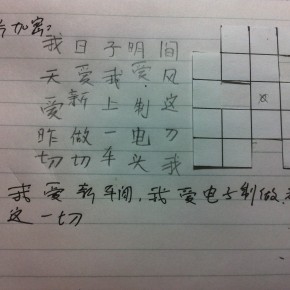 加密:
我日子明间
天爱我爱风
爱新上制这
昨做一电刀
切切车头我
我爱新车间,我爱电子制做,
这一切